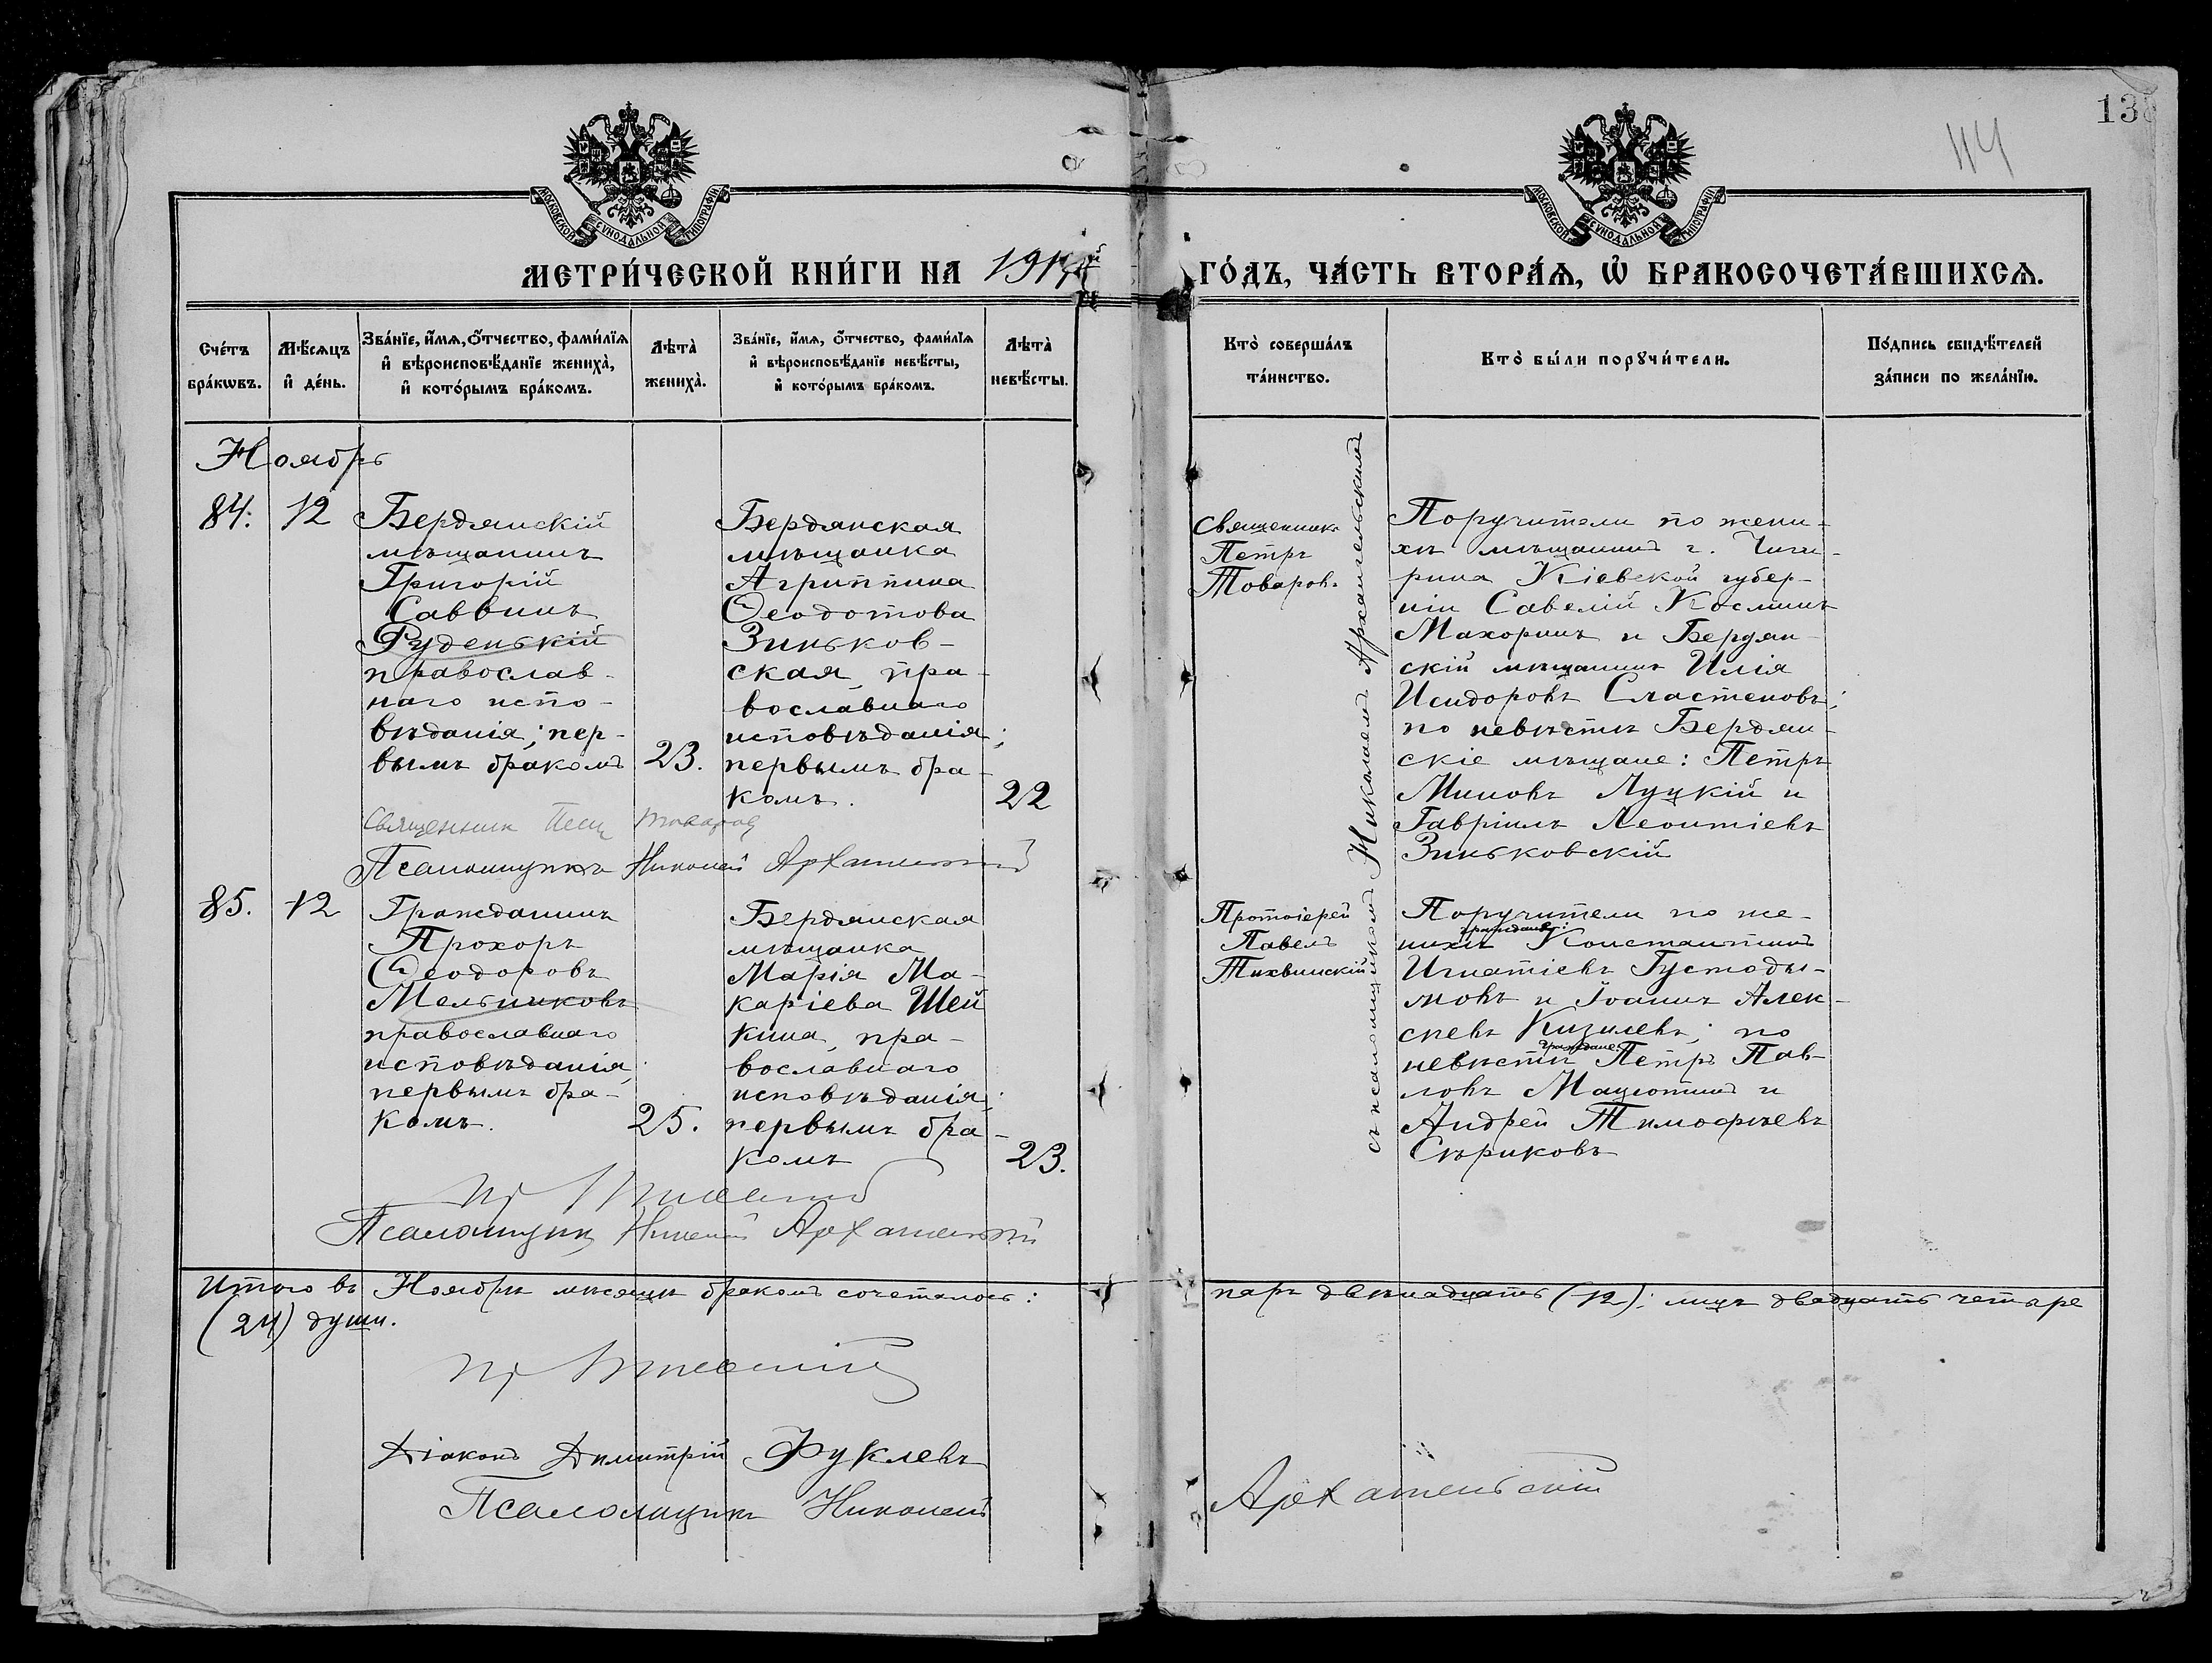 138
114
МОСКОВСКОЙ СѴНОДАЛЬНОЙ ТИПОГРАФІИ
МОСКОВСКОЙ СѴНОДАЛЬНОЙ ТИПОГРАФІИ
МЕТРИ́ЧЕСКОЙ КНИ́ГИ НА
ГО́ДЪ, ЧА́СТЬ ВТОРА́Ѧ, Ѡ҆ БРАКОСОЧЕТА́ВШИХСѦ.
Сче́тъ
бра́кѡвъ.
Мѣ́сѧцъ
и҆ де́нь.
Зва́нїе, и҆́мѧ, ѻ҆́тчество, фами́лїѧ
и҆ вѣроисповѣ́данїе жениха̀,
и҆ кото́рымъ бра́комъ.
Лѣта̀
жениха̀.
Зва́нїе, и҆́мѧ, ѻ҆́тчество, фами́лїѧ
и҆ вѣроисповѣ́данїе невѣ́сты,
и҆ кото́рымъ бра́комъ.
Лѣта̀
невѣ́сты.
Кто̀ соверша́лъ
та́инство.
Кто̀ бы́ли порꙋчи́тели.
По́дпись свидѣ́телей
за́писи по жела́нїю.
Ноябрь
84.
12
Бердянскій
мѣщанинъ
Григорій
Саввинъ
Руденькій
православ-
наго испо-
вѣданія; пер-
вымъ бракомъ
23.
Бердянская
мѣщанка
Агриппина
Ѳеодотова
Зиньков-
ская, пра-
вославнаго
исповѣданія;
первымъ бра-
комъ.
22
Священникъ
Петръ
Товаровъ
съ псаломщикомъ Николаемъ Архангельскимъ
Поручители по жени-
хѣ мѣщанинъ г. Чиги-
рина Кіевской губер-
ніи Савелій Косминъ
Махоринъ и Бердян-
скій мѣщанинъ Илія
Исидоровъ Сластеновъ;
по невѣстѣ Бердян-
скіе мѣщане: Петръ
Миновъ Луцкій и
Гавріилъ Леонтіевъ
Зиньковскій
Священник Петр Товаров
Псаломщикъ Николай Архангельскій
85.
12
Гражданинъ
Прохоръ
Ѳеодоровъ
Мельниковъ
православнаго
исповѣданія,
первымъ бра-
комъ.
25.
Бердянская
мѣщанка
Марія Ма-
каріева Шей
кина, пра-
вославнаго
исповѣданія;
первымъ бра-
комъ
23.
Протоіерей
Павелъ
Тихвинскій
Поручители по же-
граждане:
нихѣ Константинъ
Игнатіевъ Густоды-
мовъ и Іоаннъ Алек-
сѣевъ Кизилевъ; по
граждане:
невѣстѣ Петръ Пав-
ловъ Мацютинъ и
Андрей Тимоѳѣевъ
Сѣриковъ
Псаломщикъ Николай Архангельскій
Итого въ Ноябрѣ мѣсяцѣ бракомъ сочеталось: паръ двѣнадцать (12); лицъ двадцать четыре
(24) души.
Діаконъ Димитрій Фуклевъ
Псаломщикъ Николай Архангельскій